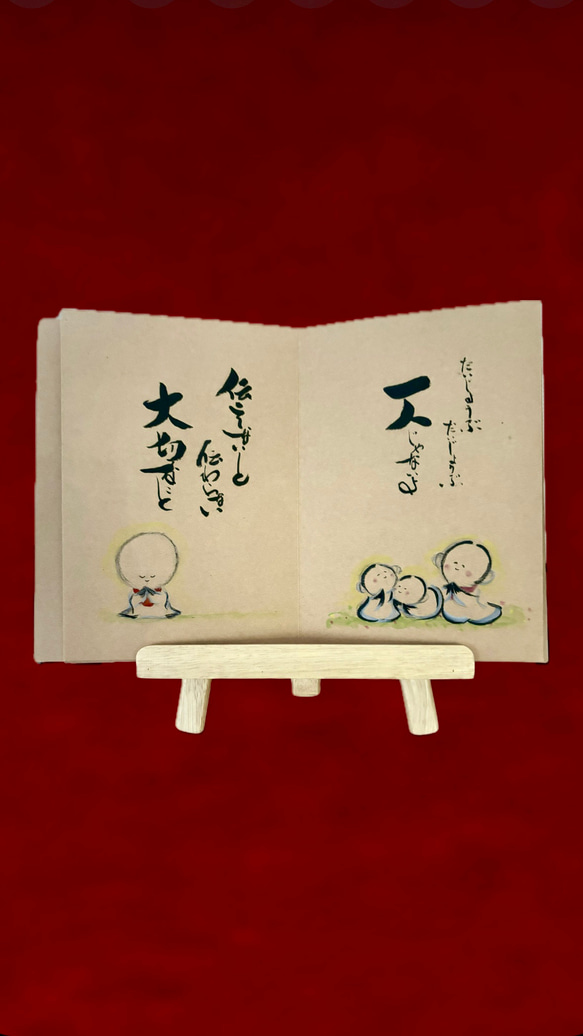 だいじょうぶ
だいじょうぶ
一人じゃないよ
伝えないと
伝わらない
大切なこと